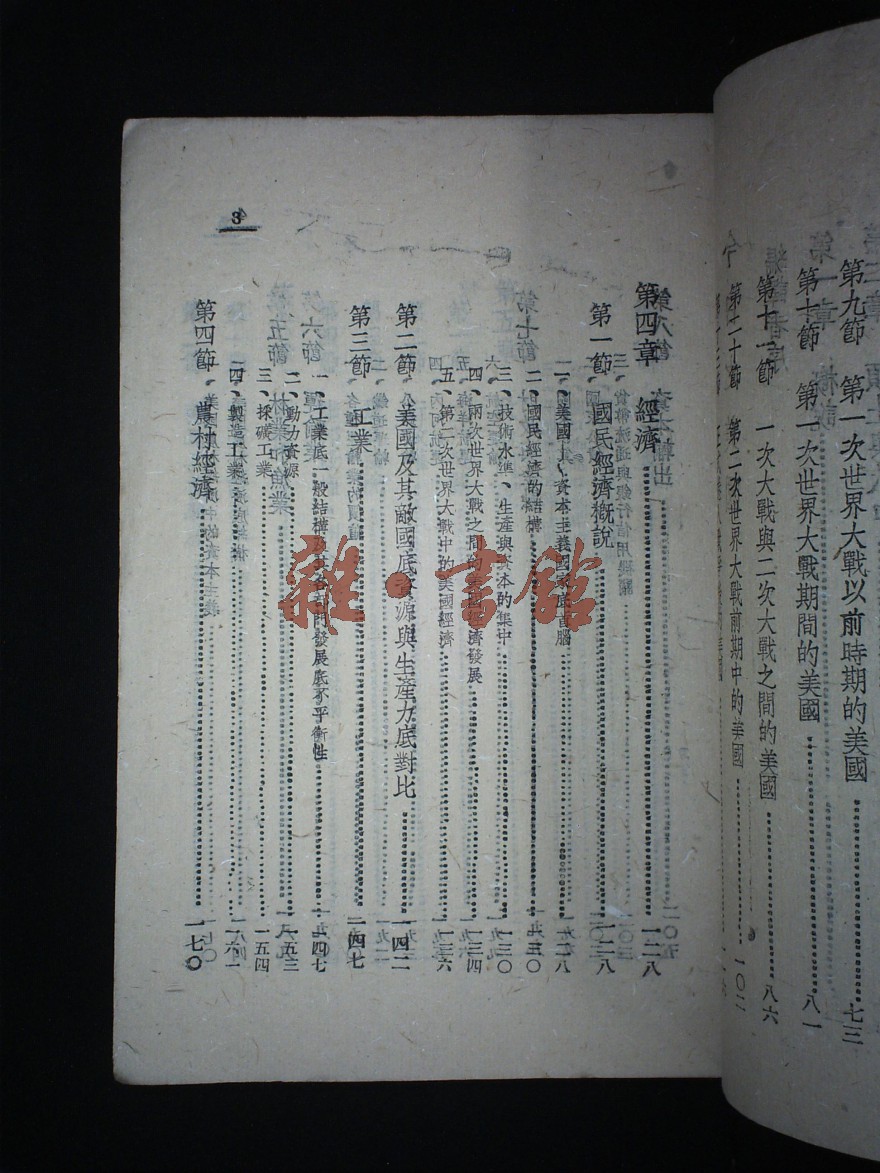 第九節 第一次世界大戰以前時期的美國 七三
第十節 第一次世界大戰期間的美國 八一
第十一節 一次大戰與二次大戰之間的美國 八六
第十二節 第二次世界大戰前期中的美國 一〇二
3
第四章 經濟 一二八
第一節 國民經濟概說 一二八
一、美國
二、國民經濟的結構
三、技術水準、生產與資本的集中 一三〇
四、兩次世界大戰之間的美國經濟發展 一三四
五、第二次世界大戰中的美國經濟 一三六
第二節 美國及其敵國底資源與生產力底對比 一四二
第三節 工業 一四七
一、工業底一般結構及其各部門發展底不平衡性 一四七
二、動力資源 一五三
三、採礦工業 一五四
四、製造工業 一六一
第四節 農村經濟 一七〇
雜·書館